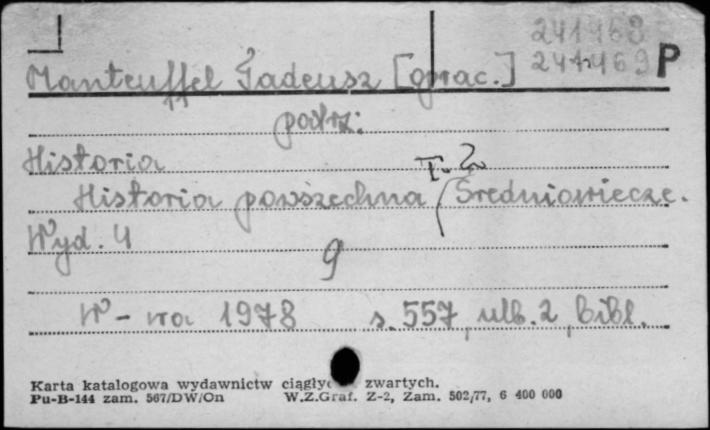 241468
241469 P
Manteuffel Tadeusz [oprac.]
patrz:
Historia
T. 2
Historia powszechna Średniowiecze.
Wyd. 4
9
W-wa 1978 s. 557, ulb. 2, bibl.
Karta katalogowa wydawnictw ciągłyc zwartych.
Pu-B-144 zam. 567/DW/On W.Z.Graf. Z-2, Zam. 502/77, 6 400 000